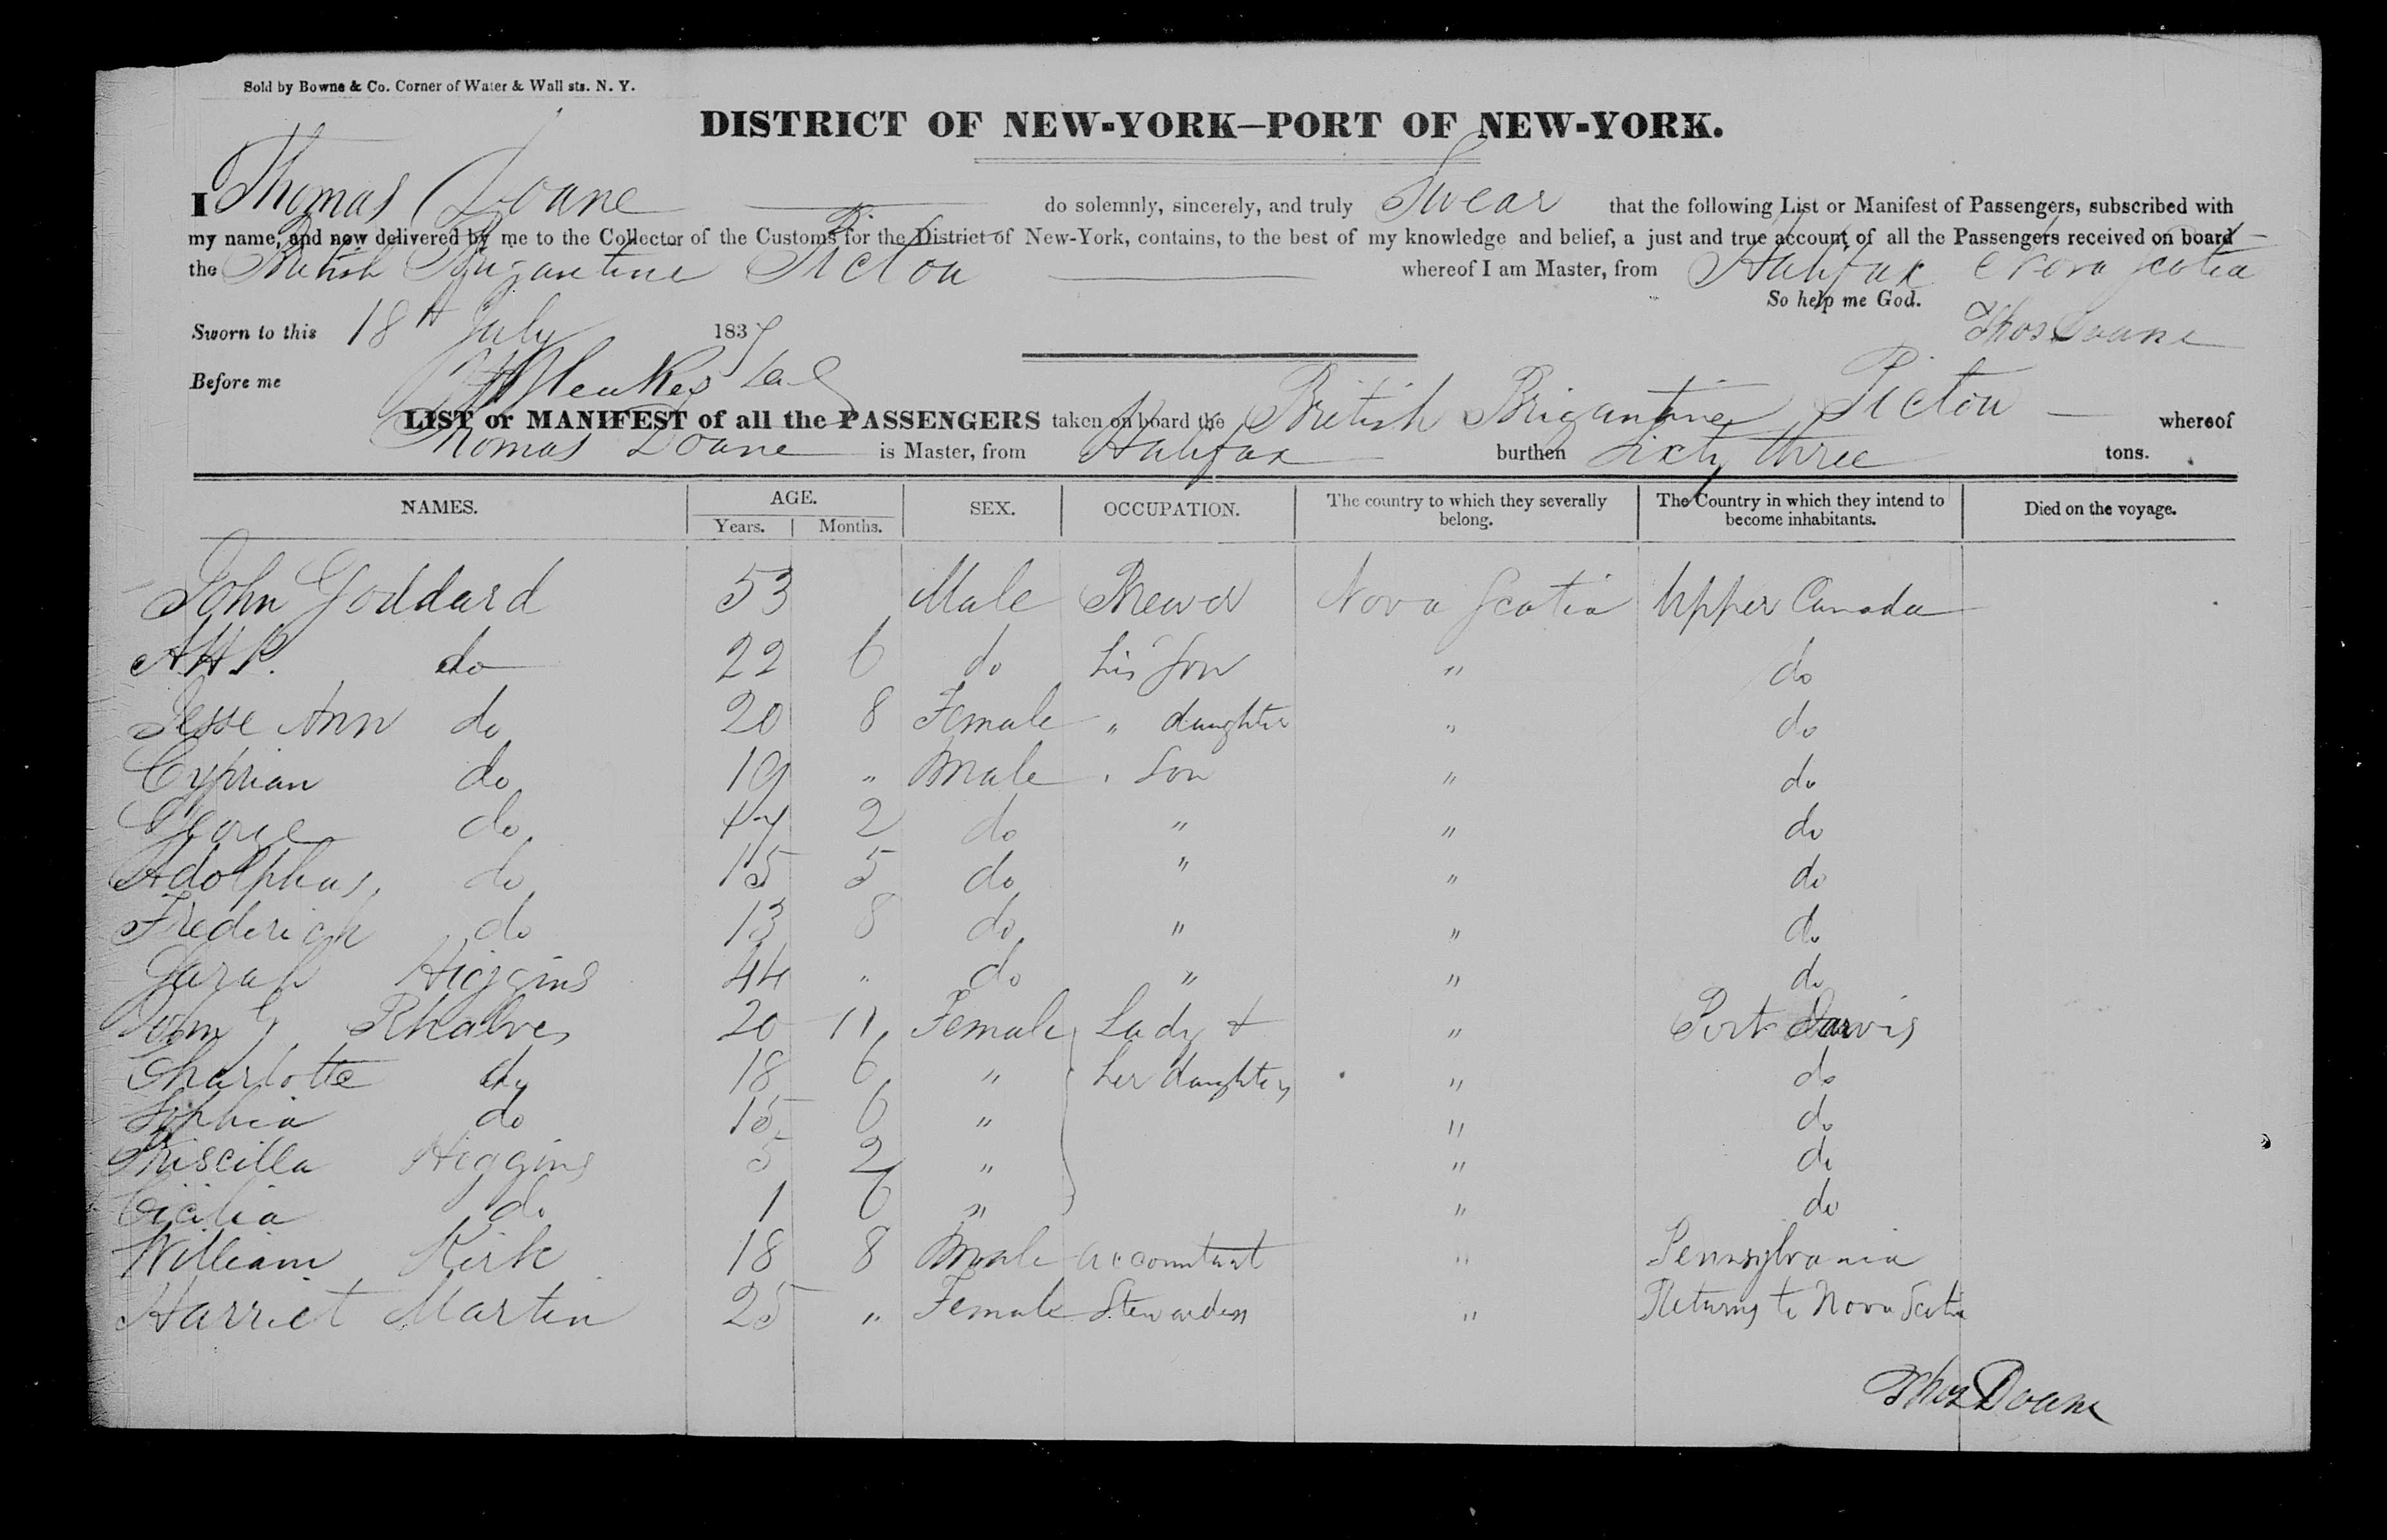 Sold by Bowne & Co. Corner of Water & Wall sts. N. Y.
DISTRICT OF NEW-YORK—PORT OF NEW-YORK.
I Thomas Doane do solemnly, sincerely, and truly Swear that the following List or Manifest of Passengers, subscribed with
my name, and now delivered by me to the Collector of the Customs for the District of New-York, contains, to the best of my knowledge and belief, a just and true account of all the Passengers received on board
the British Brigantine Pictou whereof I am Master, from Halifax Nova Scotia
So help me God.
Sworn to this 18th July 1837 Thos Doane
Before me
LIST or MANIFEST of all the PASSENGERS taken on board the British Brigantine Pictou whereof
Thomas Doane is Master, from Halifax burthen Sixty three tons.
NAMES. AGE. SEX. OCCUPATION. The country to which they severally belong. The Country in which they intend to become inhabitants. Died on the voyage.
Years. Months.
John Goddard 53 Male Brewer Nova Scotia Upper Canada
A.H.P. do 22 6 do his Son " do
Jesse Ann do 20 8 Female " daughter " do
Cyprian do 19 " Male " Son " do
George do 17 2 do " " do
Adolphus, do 15 5 do " " do
Frederick do 13 8 do " " do
Sarah Higgins 44 " do " " do
20 11 Female Lady & " Port
Charlotte do 18 6 " her daughters " do
Sophia do 15 6 " " do
Priscilla Higgins 5 2 " " do
Cicilia do 1 6 " " do
William Kirk 18 8 Male accountant " Pennsylvania
Harriet Martin 25 " Female Stewardess " Returns to Nova Scotia
Thos Doane